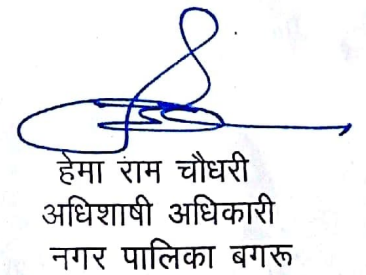 हेमा राम चौधरी
अधिशाषी अधिकारी
नगर पालिका बगरू